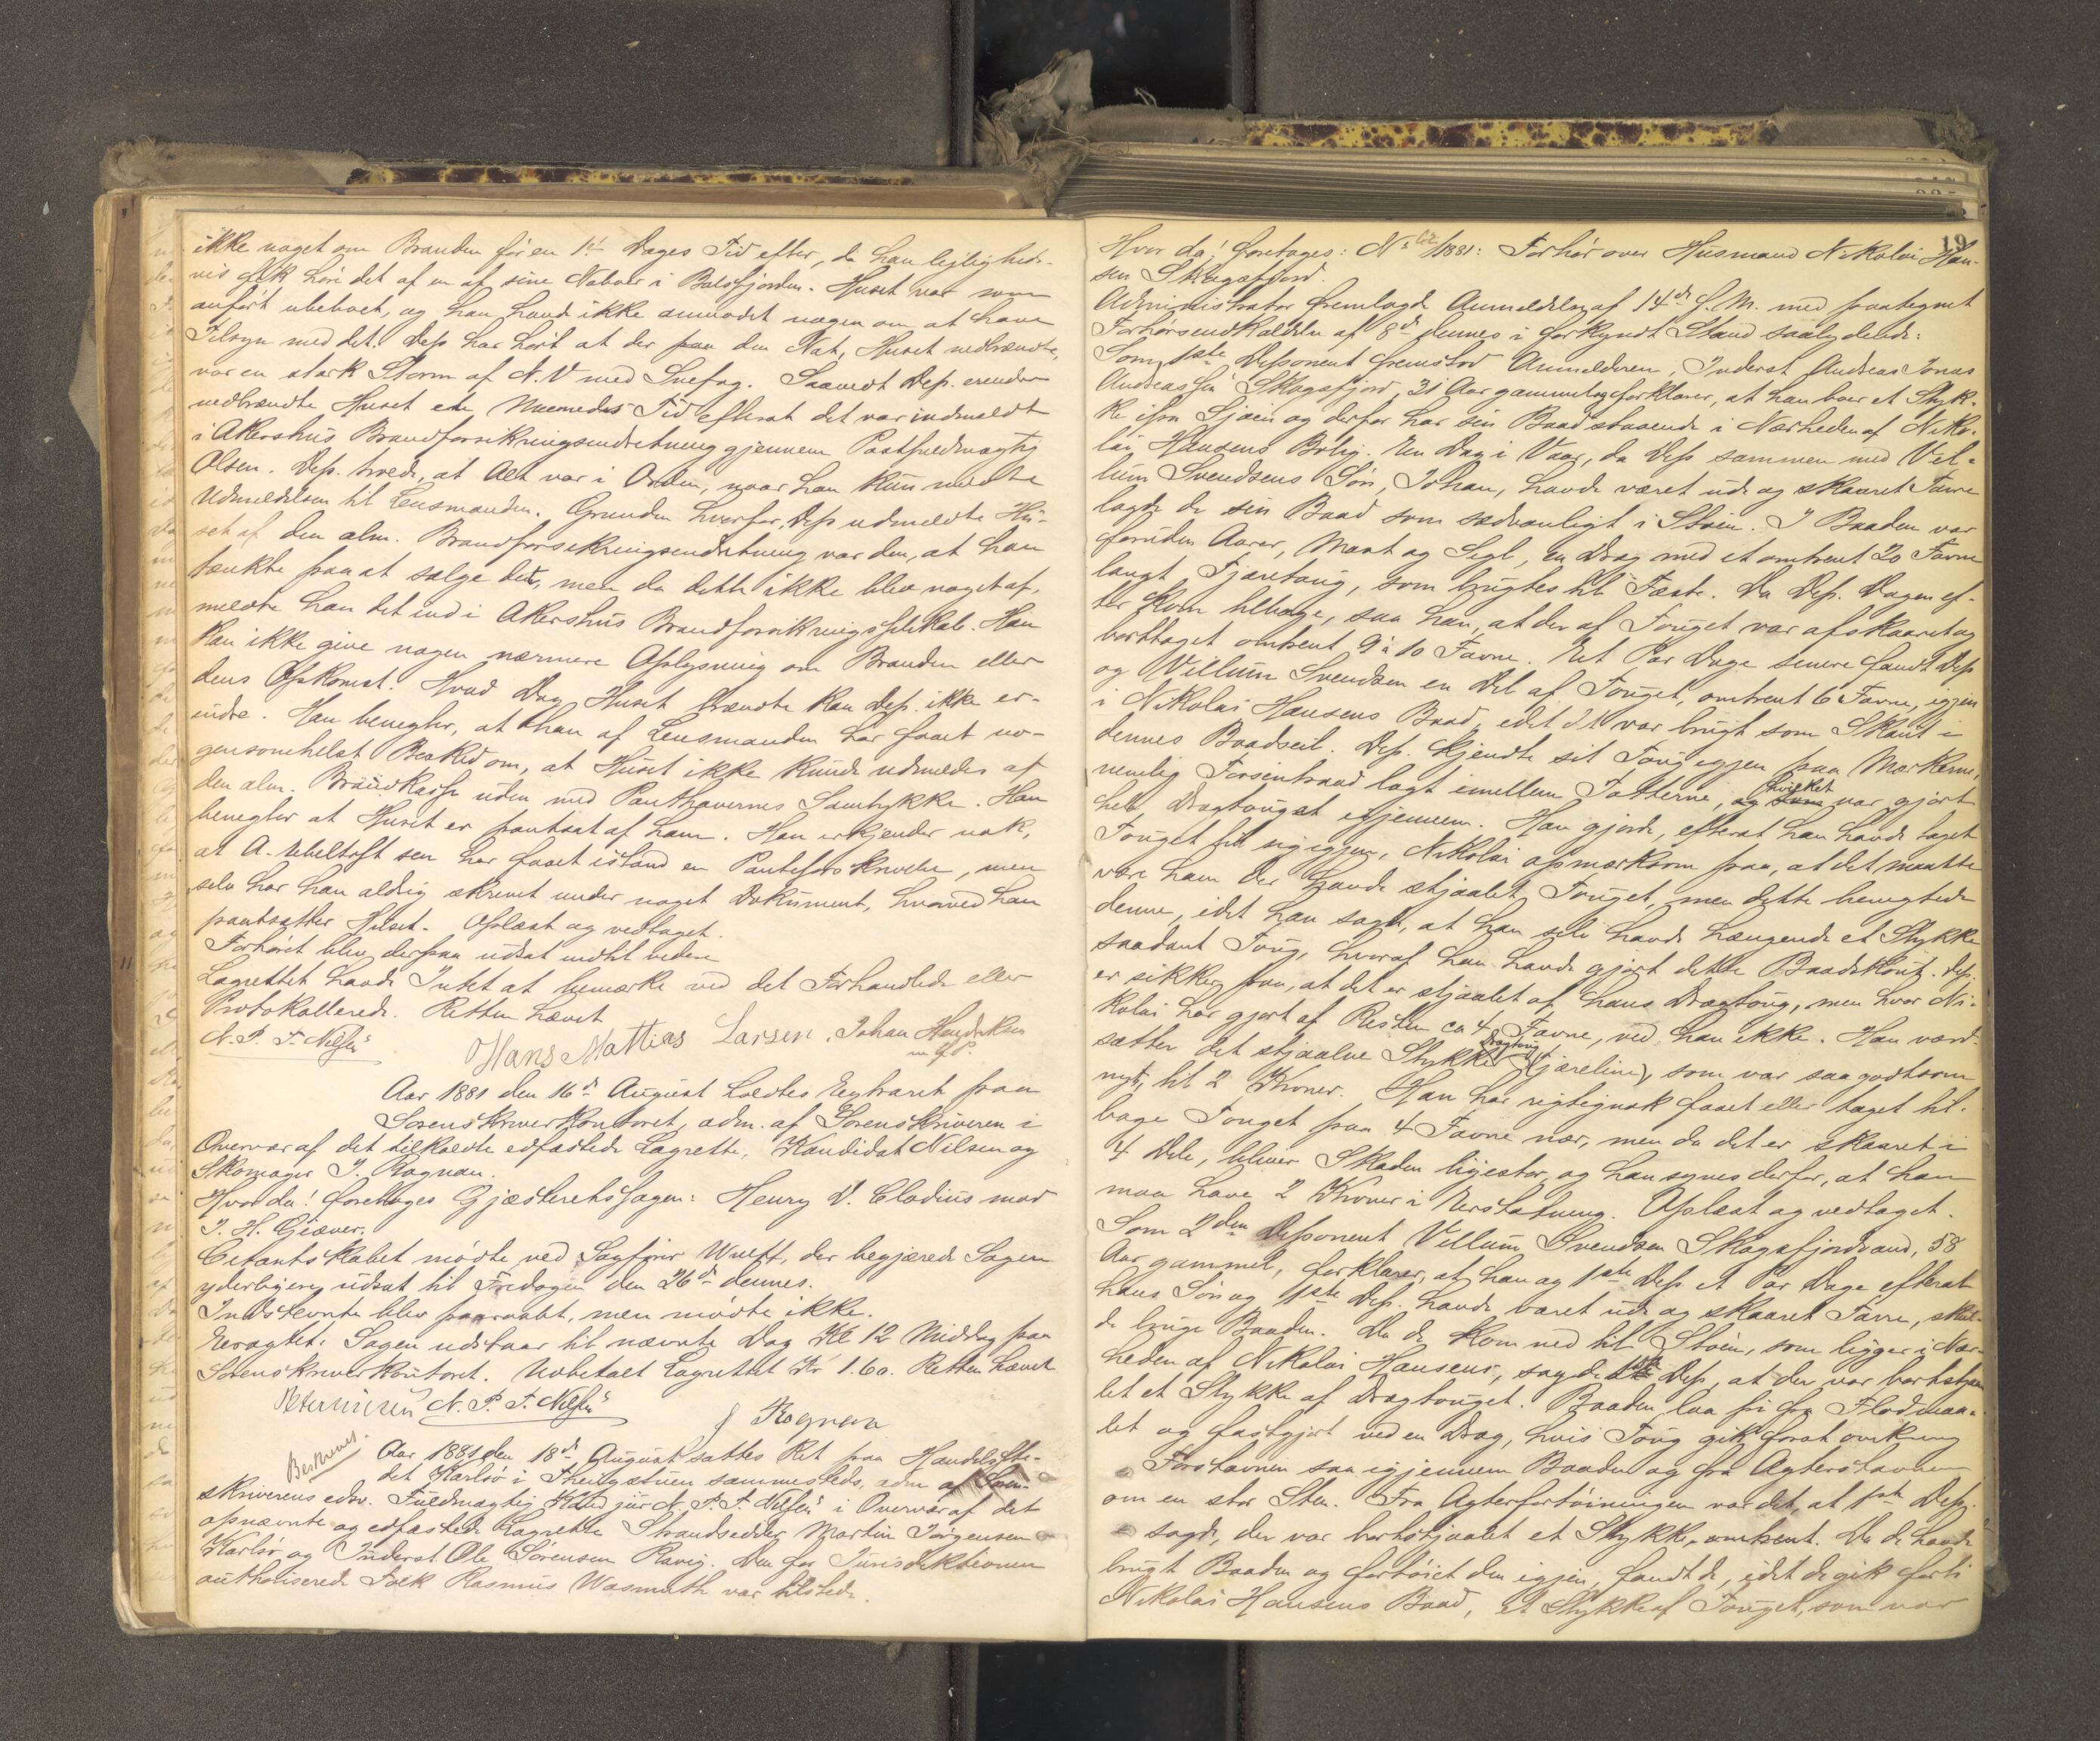 ikke noget om Branden før en 14 Dages Tid efter, da han leiligheds-
vis fik høre det af en af sine Naboer i Balsfjorden. Huset var som
anført ubeboet, og han havde ikke anmodet nogen om at have
Tilsyn med det. Dep. har hørt at der paa den Nat, Huset nedbrændte,
var en stærk Storm af N.V med Snefog. Saavidt Dep. erindrer
nedbrændte Huset en Maaneds Tid efterat det var indmeldt
i Akershus Brandforsikringsindretning gjennem Fuldmægtig
Olsen. Dep. troede, at Alt var i Orden, naar han kun meldte
Udmeldelsen til Lensmanden. Grunden hvorfor Dep. udmeldte Hu-
set af den alm. Brandforsikringsindretning var den, at han
tænkte paa at sælge det, men da dette ikke blev noget af,
meldte han det ind i Akershus Brandforsikringsselskab. Han
kan ikke give nogen nærmere Oplysning om Branden eller
dens Opkomst. Hvad Dag Huset brændte kan Dep. ikke er-
indre. Han benegter, at han af Lensmanden har faaet no-
gensomhelst Besked om, at Huset ikke kunde udmeldes af
den alm. Brandkasse uden med Panthavernes Samtykke. Han
benegter at Huset er pantsat af ham. Han erkjender nok,
at A. Ebeltoft sen har faaet istand en Panteforskrivelse, men
selv har han aldrig skrevet under noget Dokument, hvorved han
pantsætter Huset. Oplæst og vedtaget.
Forhøret blev derpaa udsat indtil videre
Lagrettet havde Intet at bemærke ved det Forhandlede eller
Protokollerede. Retten hævet
N. P. F. Nilsen Hans Mattias Larsen. Johan Hendriksen
m. f. P.
Aar 1881 den 16de August holdtes Extraret paa
Sorenskriverkontoret, adm. af Sorenskriveren i
Overvær af det tilkaldte edfæstede Lagrette, Kandidat Nilsen og
Skomager J. Rognan.
Hvor da! foretoges Gjæsteretssagen: Henry D. Clodius mod
J. H. Giæver.
Citantskabet mødte ved Sagfører Wulff, der begjærede Sagen
yderligere udsat til Fredagen den 26de dennes.
Indstevnte blev paaraabt, men mødte ikke.
Eragtet: Sagen udstaar til nævnte Dag Kl 12 Middag paa
Sorenskriverkontoret. Ubetalt Lagrettet Kr 1.60. Retten hævet
N. P. F. Nilsen
J Rognan
Beskrevet.
Aar 1881 den 18de August sattes Ret paa Handelsste-
det Karlsø i Thingstuen sammesteds, adm af Soren-
skriverens edsv. Fuldmægtig Kand jur N. P. F. Nilsen i Overvær af det
opnævnte og edfæstede Lagrette Strandsidder Martin Jørgensen
Karlsø og Inderst Ole Sørensen Ravig. Den for Jurisdiktionen
authoriserede Tolk Rasmus Wasmuth var tilstede.
19
Hvor da! foretages: No /1881: Forhør over Husmand Nikolai Han-
sen Skogsfjord.
Administrator fremlagde Anmeldelse af 14de f. M. med paategnet
Forhørsindkaldelse af 8de dennes i forkyndt Stand saalydende:
Som 1ste Deponent fremstod Anmelderen, Inderst Andreas Jonas
Andreassen Skogsfjord, 21 Aar gammel og forklarer, at han boer et Styk-
ke ifra Sjøen og derfor har sin Baad staaende i Nærheden af Niko-
lai Hansens Bolig. En Dag i Vaar, da Dep sammen med Vil-
lum Svendsens Søn, Johan, havde været ude og skaaret Tare
lagde de sin Baad som sædvanligt i Støen. I Baaden var
foruden Aarer, Mast og Segl, en Drag med et omtrent 20 Favne
langt Tjæretoug, som brugtes til Fæste. Da Dep. Dagen ef-
ter kom tilbage, saa han, at der af Touget var afskaaret og
borttaget omtrent 9 à 10 Favne. Et Par Dage senere fandt Dep
og Villum Svendsen en Del af Touget, omtrent 6 Favne, igjen
i Nikolai Hansens Baad, idet det var brugt som Skaut i
dennes Baadseil. Dep. kjendte sit Toug igjen paa Mærkerne,
nemlig Forsentraad lagt imellem Tatterne, hvilket var gjort
hele Dragtouget igjennem. Han gjorde, efterat han havde taget
Touget til sig igjen, Nikolai opmærksom paa, at det maatte
være ham der havde stjaalet Touget, men dette benegtede
denne, idet han sagde, at han selv havde hængende et Stykke
saadant Toug, hvoraf han havde gjort dette Baadskaut. Dep.
er sikker paa, at det er stjaalet af hans Dragtoug, men hvor Ni-
kolai har gjort af Resten ca 4 Favne, ved han ikke. Han værd-
sætter det stjaalne Stykke Dragtoug (Tjæreline), som var saagodtsom
nyt, til 2 Kroner. Han har rigtignok faaet eller taget til-
bage Touget paa 4 Favne nær, men da det er skaaret i
4 Dele, bliver Skaden ligestor og han synes derfor, at han
maa have 2 Kroner i Erstatning. Oplæst og vedtaget.
Som 2den Deponent Villum Svendsen Skogsfjordvand, 58
Aar gammel, forklarer, at han og 1ste Dep et Par Dage efterat
hans Søn og 1ste Dep. havde været ude og skaaret Tare, skul-
de bruge Baaden. Da de kom ned til Støen, som ligger i Nær-
heden af Nikolai Hansens, sagde 1ste Dep, at der var bortstjaa-
let et Stykke af Dragtouget. Baaden laa fri fra Flodmaa-
let og fastgjort ved en Drag, hvis Toug gik forat omkring
Forstavnen saa igjennem Baaden og fra Agterstavnen
om en stor Sten. Fra Agterfortøiningen var det, at 1ste Dep.
sagde, der var bortstjaalet et Stykke omtrent. Da de havde
brugt Baaden og fortøiet den igjen, fandt de, idet de gik forbi
Nikolai Hansens Baad, et Stykke af Touget, som var